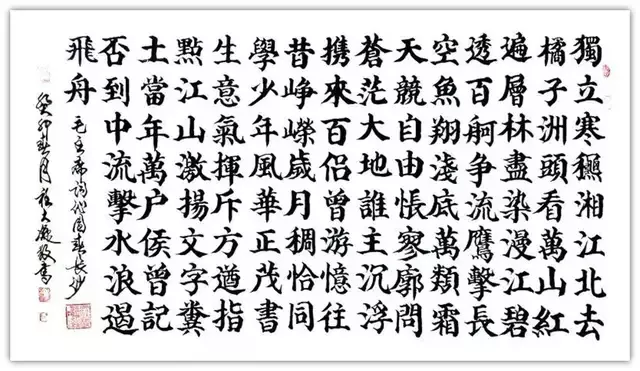 獨立寒穐湘江北去
橘子洲頭看萬山紅
遍層林盡染漫江碧
透百舸争流鷹擊長
空魚翔淺底萬類霜
天競自由悵寥廓問
蒼茫大地誰主沉浮
携來百侣曾游憶往
昔峥嶸歲月稠恰同
學少年風華正茂書
生意氣揮斥方遒指
點江山激揚文字糞
土當年萬户侯曾記
否到中流擊水浪遏
飛舟
毛主席詞沁園春長沙
癸卯春月書